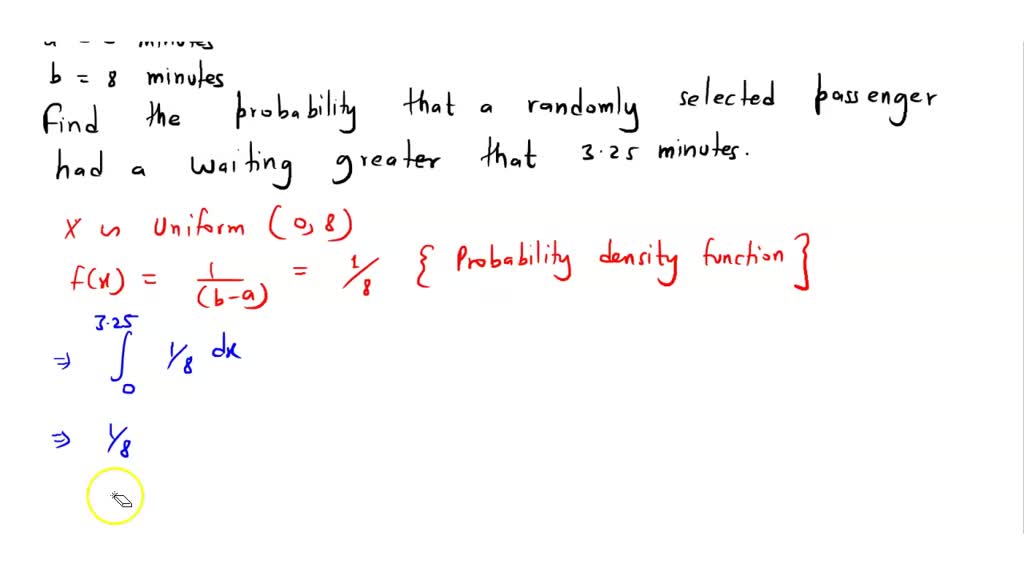 minutes
b = 8 minutes
Find the probability that a randomly selected passenger
had a waiting greater that 3.25 minutes.
X ~ Uniform (0, 8)
f(x) = 1/(b-a) = 1/8 { Probability density function }
⇒ ∫₀^3.25 1/8 dx
⇒ 1/8